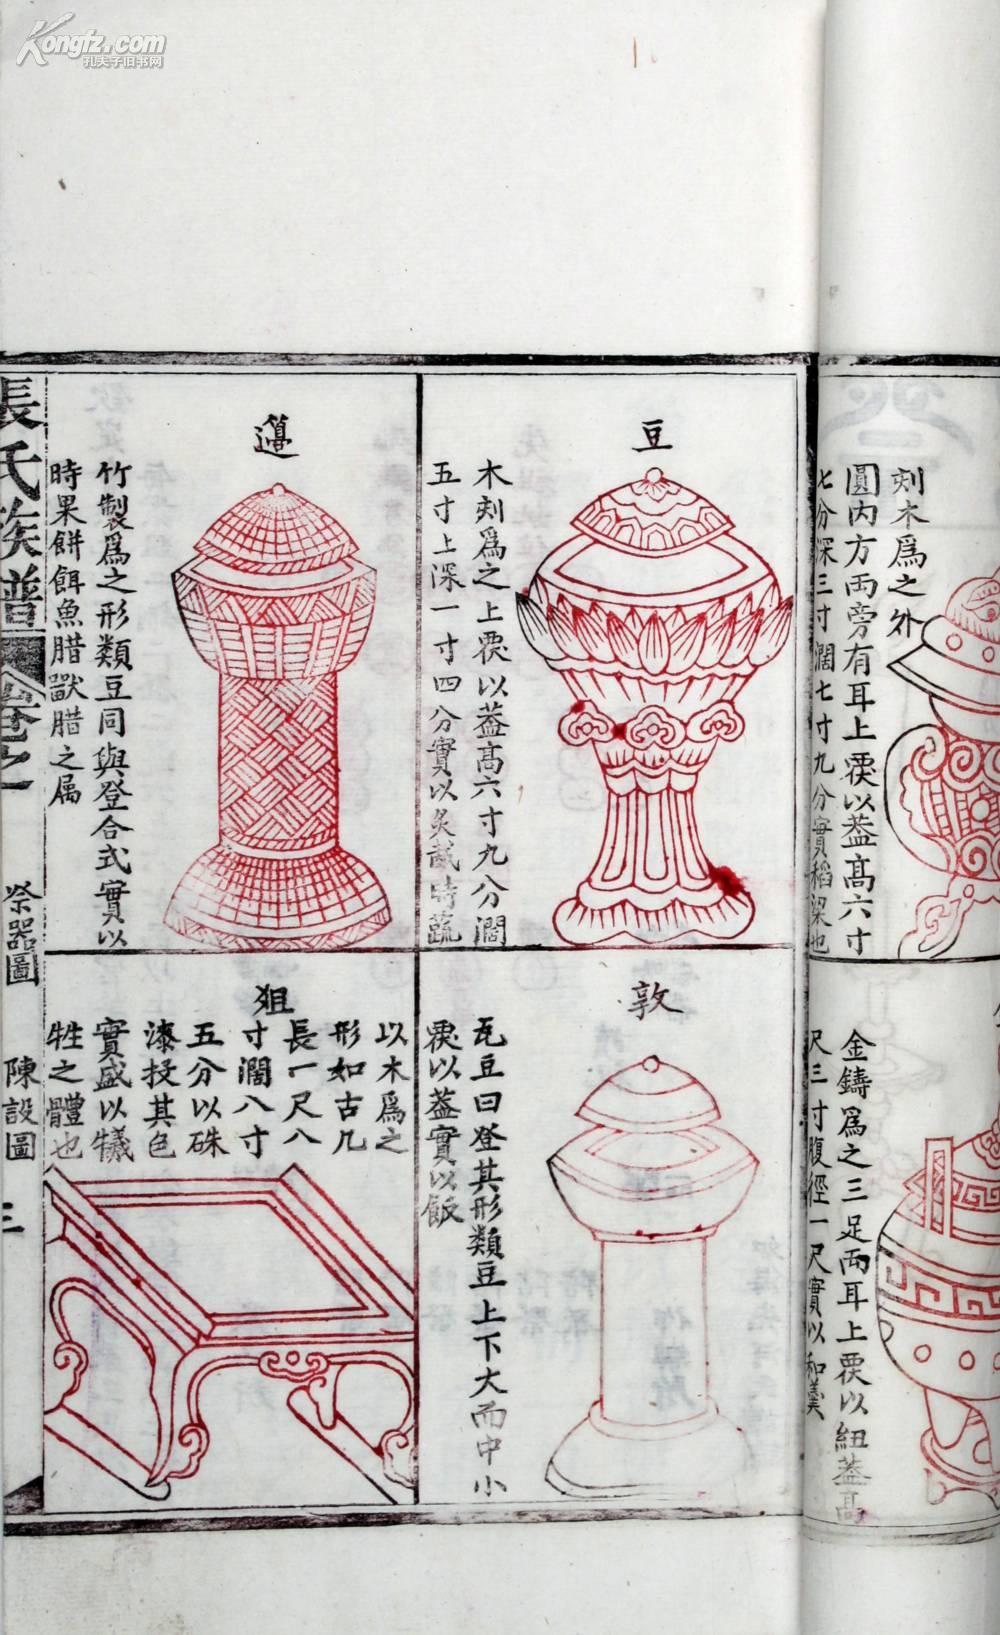 Kongfz.com
孔夫子旧书网
刻木爲之外
圓内方两旁有耳上覆以蓋高六寸
七分深三寸濶七寸九分實稻粱也
金鑄爲之三足两耳上覆以紐蓋高
尺三寸腹徑一尺實以和羹
豆
木刻爲之上覆以蓋高六寸九分濶
五寸上深一寸四分實以炙胾時蔬
敦
瓦豆曰登其形類豆上下大而中小
覆以蓋實以飯
籩
竹製爲之形類豆同與登合式實以
時果餅餌魚腊獸腊之属
狙
以木爲之
形如古几
長一尺八
寸濶八寸
五分以硃
漆投其色
實盛以犧
牲之體也
張氏族譜
卷之一
祭器圖
陳設圖
三